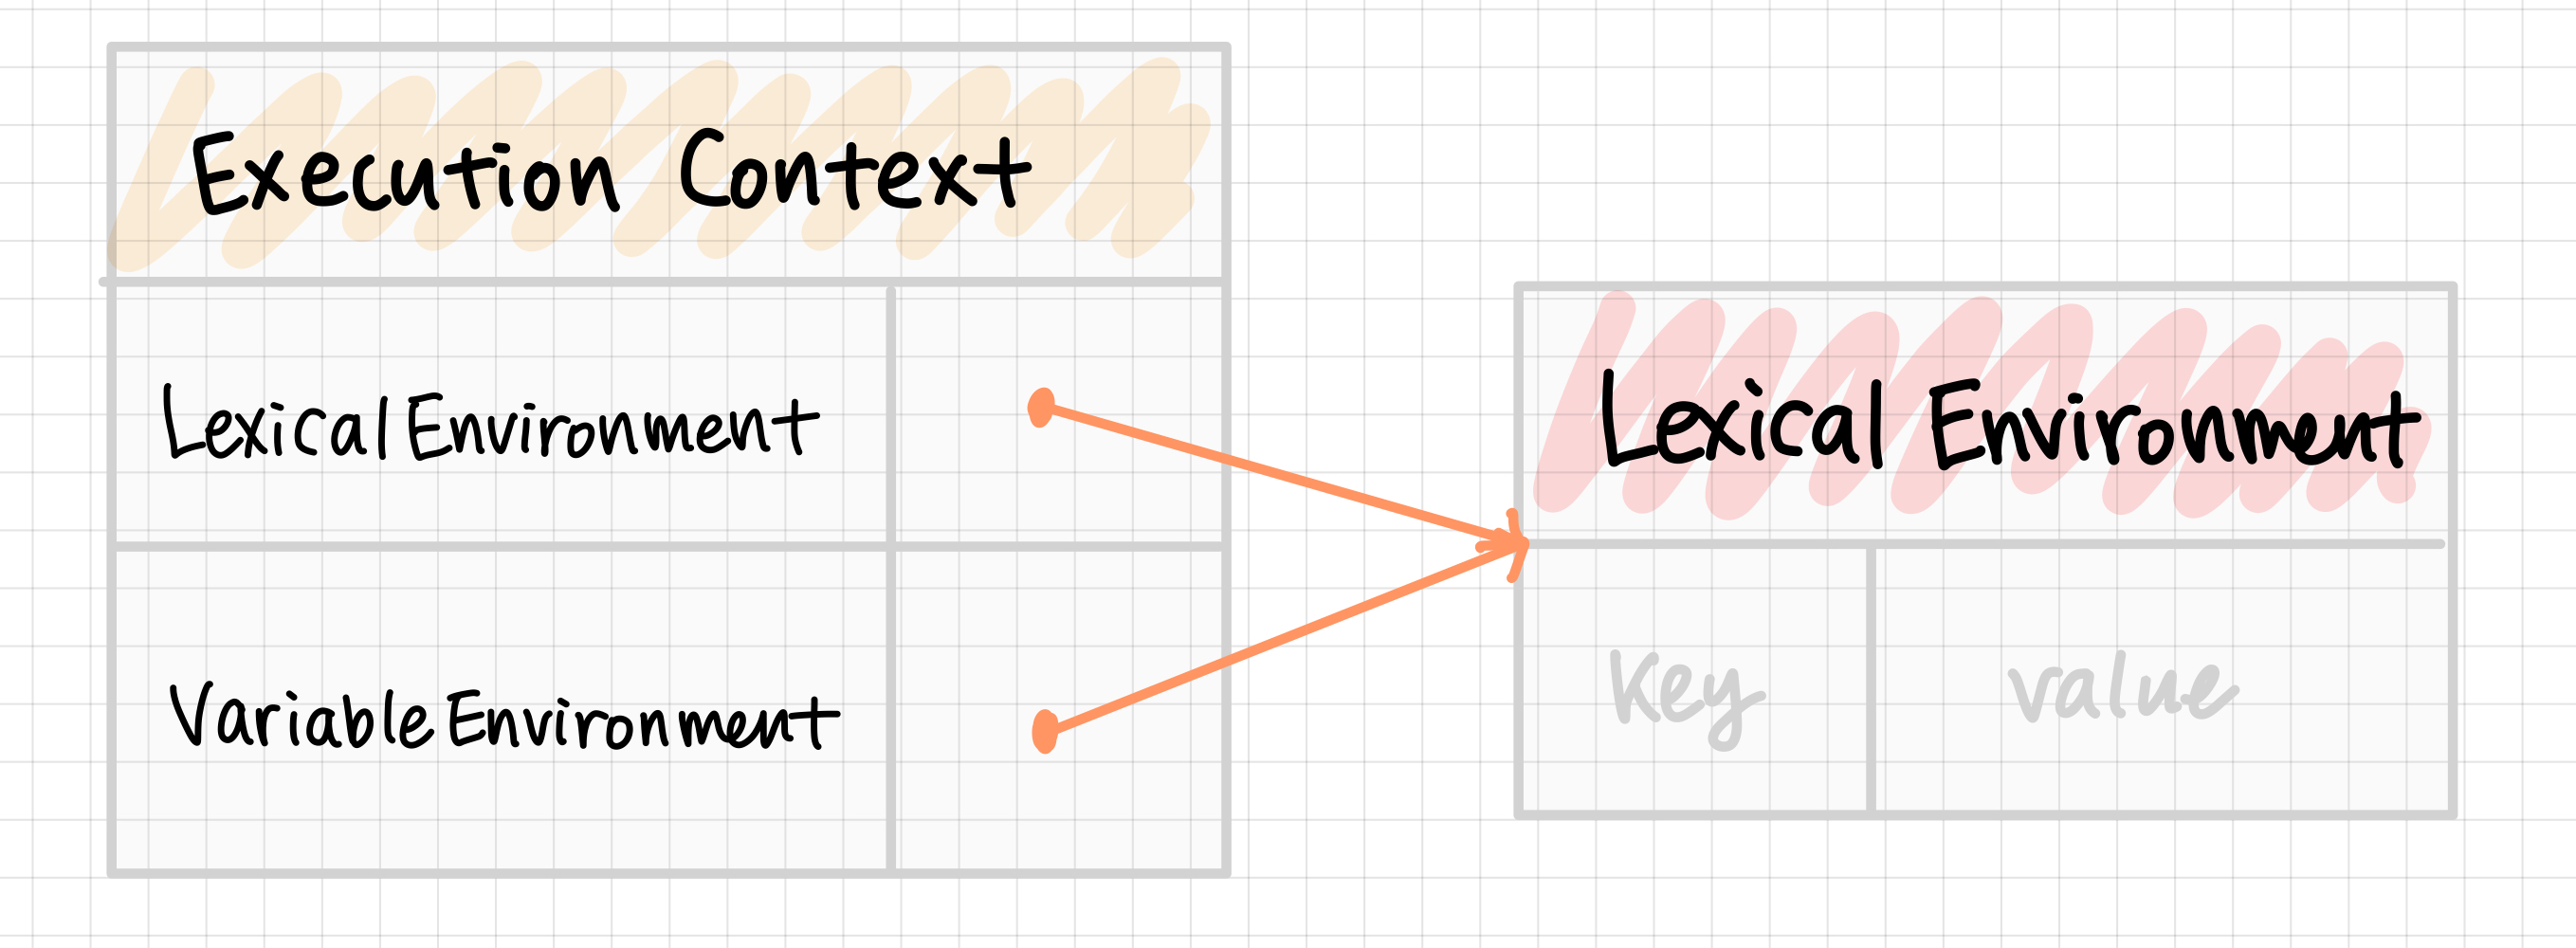 Execution Context
LexicalEnvironment
VariableEnvironment
Lexical Environment
Key
value